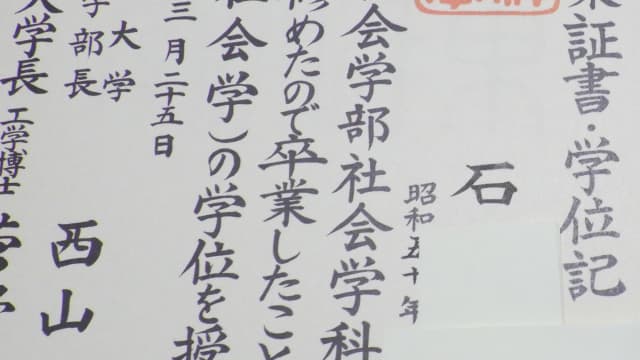 業証書・学位記
石
昭和五十年
会学部社会学科
修めたので卒業したこと
社会学）の学位を授
三月二十五日
大学
学部長
西山
大学長 工学博士